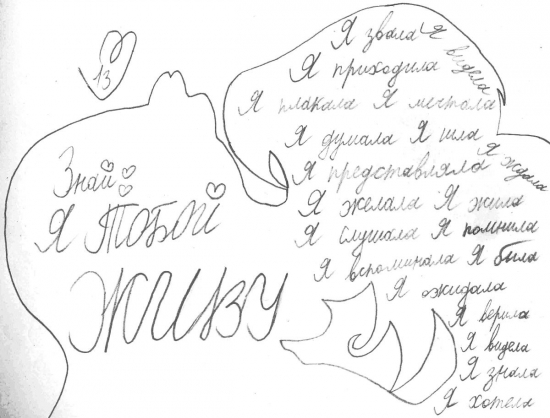 13
Знай
Я ТОБОЙ
ЖИВУ
Я звала Я видела
Я приходила
Я плакала Я мечтала
Я думала Я шла
Я представляла Я ждала
Я желала Я жила
Я слушала Я помнила
Я вспоминала Я была
Я ожидала
Я верила
Я видела
Я знала
Я хотела